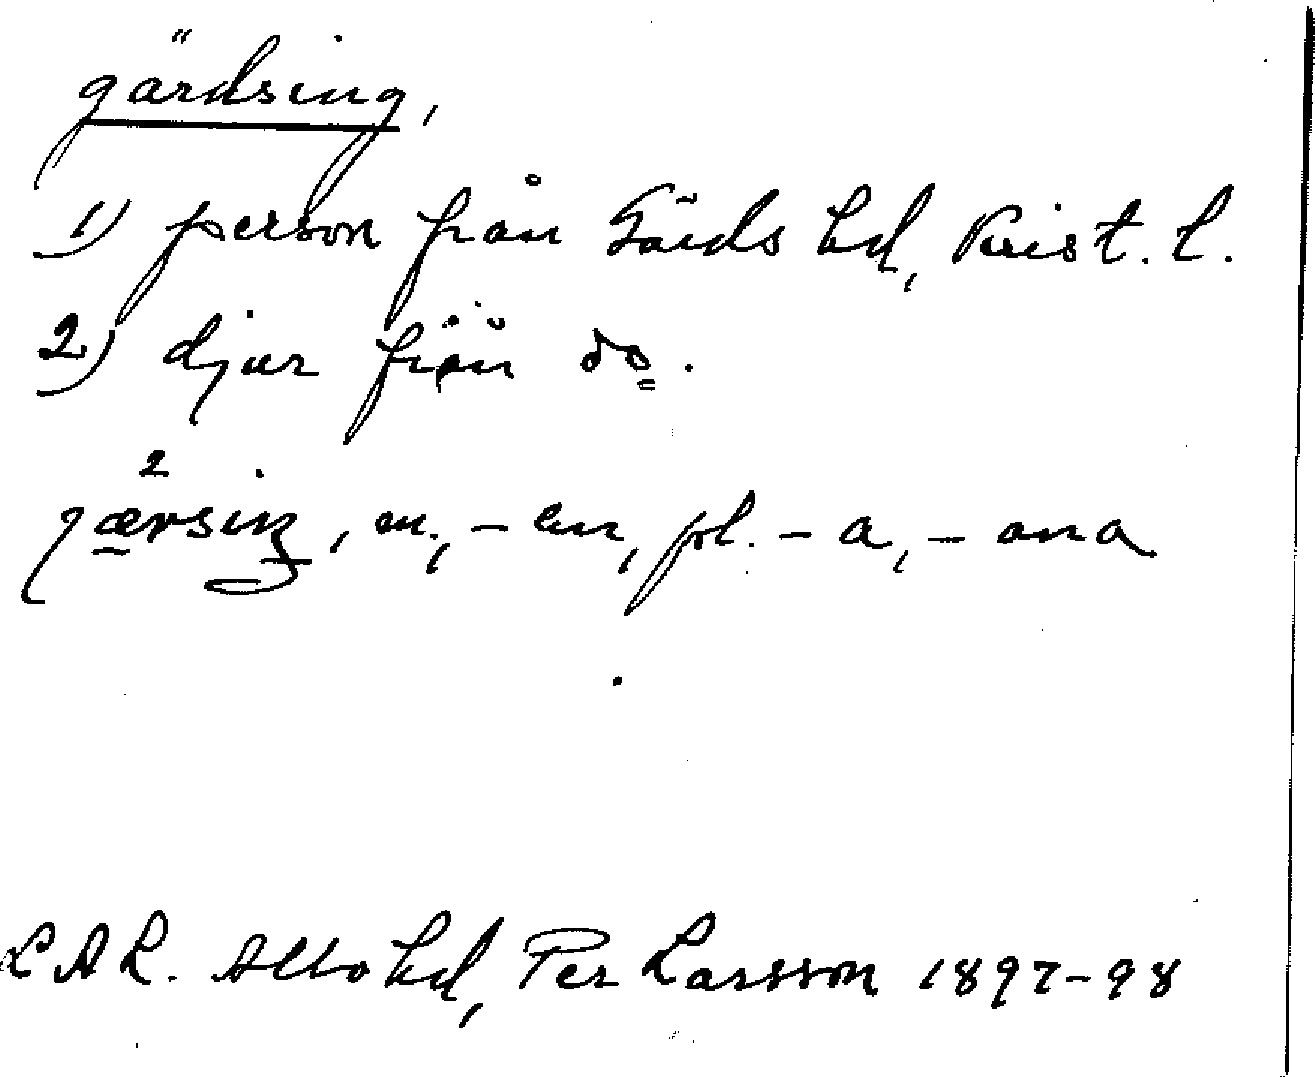 gärdsing,
1) person från Gärds hd, Krist. l.
2) djur från do.
jærsiŋ, m., -en, pl. -a, -ana
LAL. Albo hd, Per Larsson 1897-98